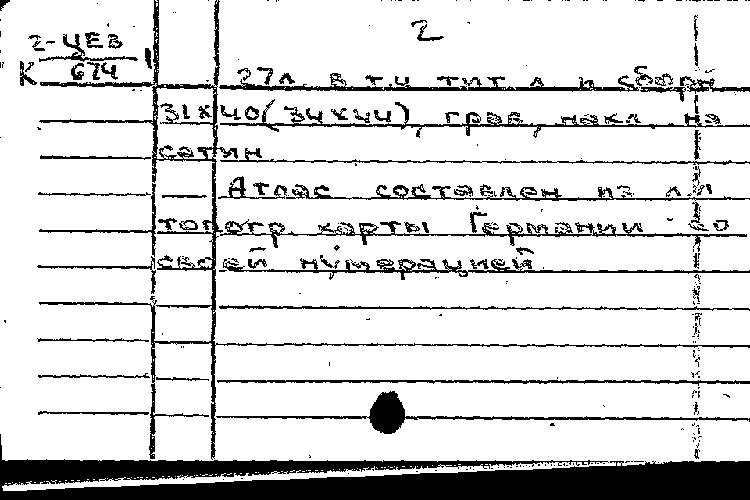 2
2-ЦЕВ
К 674 1
27л. в т.ч. тит л и сборн
31х40(34х44), грав., накл. на
сатин
— Атлас составлен из л.л
топогр. карты Германии со
своей нумерацией